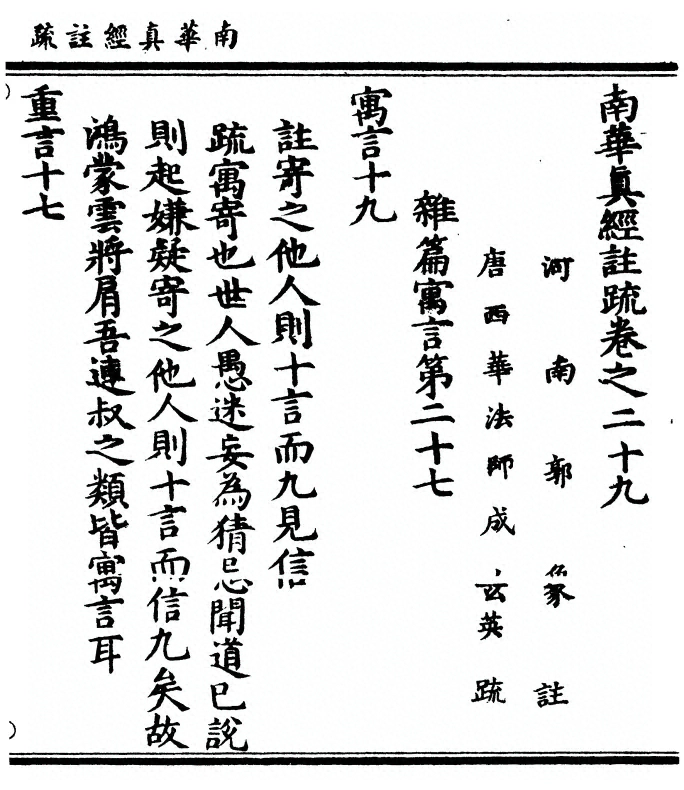 南華真經註疏
南華真經註疏卷之二十九
河南郭象註
唐西華法師成玄英疏
雜篇寓言第二十七
寓言十九
註寄之他人則十言而九見信
疏寓寄也世人愚迷妄為猜忌聞道已說
則起嫌疑寄之他人則十言而信九矣故
鴻蒙雲將肩吾連叔之類皆寓言耳
重言十七